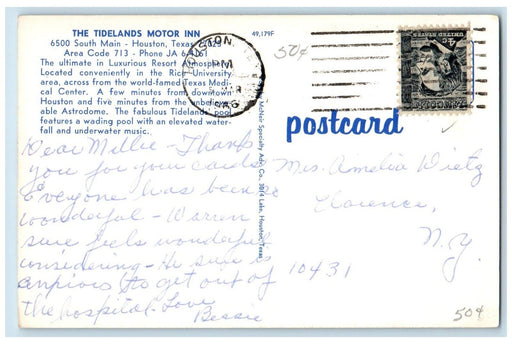 THE TIDELANDS MOTOR INN
6500 South Main - Houston, Texas 77025
Area Code 713 - Phone JA
The ultimate in Luxurious Resort Atmosphere.
Located conveniently in the Rice University
area, across from the world-famed Texas Medi-
cal Center. A few minutes from downtown
Houston and five minutes from the unbeliev-
able Astrodome. The fabulous Tidelands pool
features a wading pool with an elevated water-
fall and underwater music.
49,179F
McNair Specialty Adv. Co., 3014 Lake, Houston, Texas
HOUSTON, TEX
PM
50¢
UNITED STATES
4c
LINCOLN
postcard
Dear Millie - Thanks
you for your cards
Everyone has been so
wonderful - Warren
sure feels wonderful
considering - He sure is
anxious to get out of
the hospital - Love
Bessie
Mrs. Amelia Dietz
Clarence,
N.Y.
10431
50¢